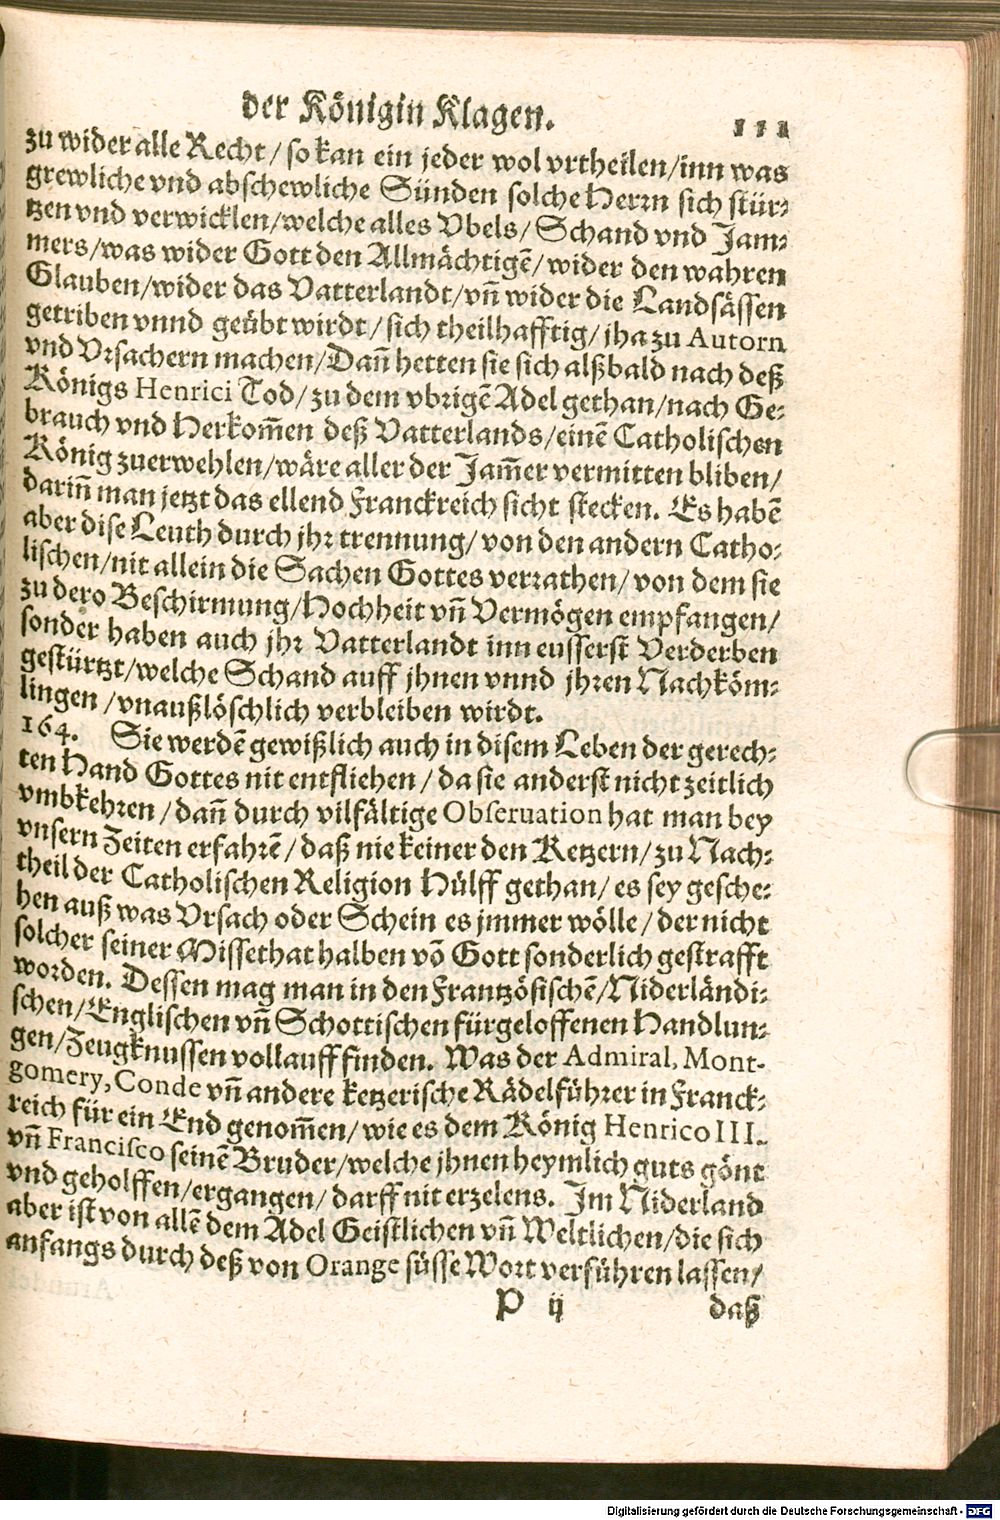 der Königin Klagen. 111
zu wider alle Recht / so kan ein jeder wol vrtheilen/inn was
grewliche vnd abschewliche Sünden solche Herrn sich stür-
tzen vnd verwicklen/welche alles Vbels/ Schand vnd Jam-
mers/was wider Gott den Allmächtigē/wider den wahren
Glauben/wider das Vatterlandt/vn̄ wider die Landsässen
getriben vnnd geübt wirdt / sich theilhafftig/ jha zu Autorn
vnd Vrsachern machen/Dan̄ hetten sie sich alßbald nach deß
Königs Henrici Tod/ zu dem vbrigē Adel gethan/nach Ge-
brauch vnd Herkom̄en deß Vatterlands/einē Catholischen
König zuerwehlen/wäre aller der Jam̄er vermitten bliben/
darin̄ man jetzt das ellend Franckreich sicht stecken. Es habē
aber dise Leuth durch jhr trennung/ von den andern Catho-
lischen/nit allein die Sachen Gottes verrathen/ von dem sie
zu dero Beschirmung/Hochheit vn̄ Vermögen empfangen/
sonder haben auch jhr Vatterlandt inn eusserst Verderben
gestürtzt/welche Schand auff jhnen vnnd jhren Nachköm-
lingen /vnaußlöschlich verbleiben wirdt.
164. Sie werdē gewißlich auch in disem Leben der gerech-
ten Hand Gottes nit entfliehen / da sie anderst nicht zeitlich
vmbkehren / dan̄ durch vilfältige Obseruation hat man bey
vnsern Zeiten erfahrē / daß nie keiner den Ketzern/ zu Nach-
theil der Catholischen Religion Hülff gethan/ es sey gesche-
hen auß was Vrsach oder Schein es jmmer wölle / der nicht
solcher seiner Missethat halben vō Gott sonderlich gestrafft
worden. Dessen mag man in den Frantzösischē/Niderländi-
schen/Englischen vn̄ Schottischen fürgeloffenen Handlun-
gen/Zeugknussen vollauff finden. Was der Admiral, Mont-
gomery, Conde vn̄ andere ketzerische Rädelführer in Franck-
reich für ein End genom̄en/ wie es dem König Henrico III.
vn̄ Francisco seinē Bruder/welche jhnen heymlich guts gönt
vnd geholffen/ergangen/ darff nit erzelens. Im Niderland
aber ist von allē dem Adel Geistlichen vn̄ Weltlichen/die sich
anfangs durch deß von Orange süsse Wort verführen lassen/
P ij daß
Digitalisierung gefördert durch die Deutsche Forschungsgemeinschaft - DFG